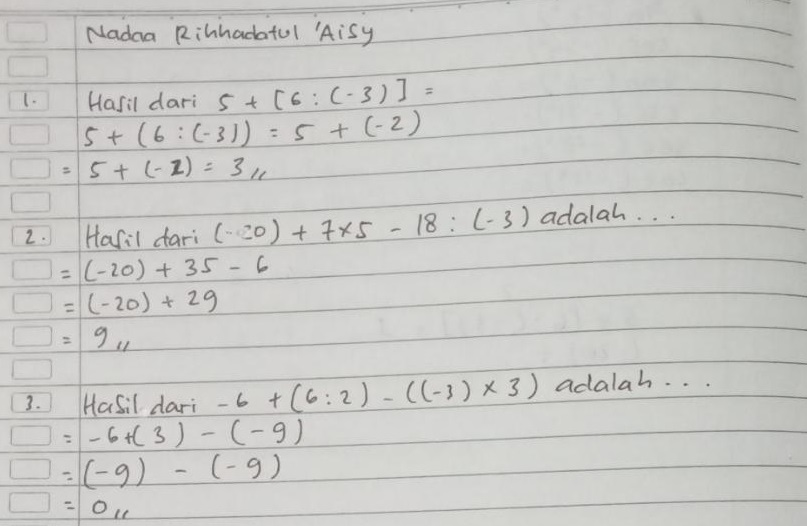 Nadaa Rihhadatul 'Aisy
1. Hasil dari 5 + [6 : (-3)] =
5 + (6 : (-3)) = 5 + (-2)
= 5 + (-2) = 3 //
2. Hasil dari (-20) + 7x5 - 18 : (-3) adalah...
= (-20) + 35 - 6
= (-20) + 29
= 9 //
3. Hasil dari -6 + (6:2) - ((-3) x 3) adalah...
= -6+(3) - (-9)
= (-9) - (-9)
= 0 //